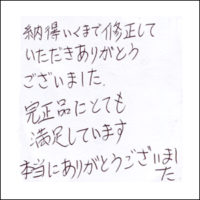 納得いくまで修正して
いただきありがとう
ございました。
完正品にとても
満足しています
本当にありがとうございました